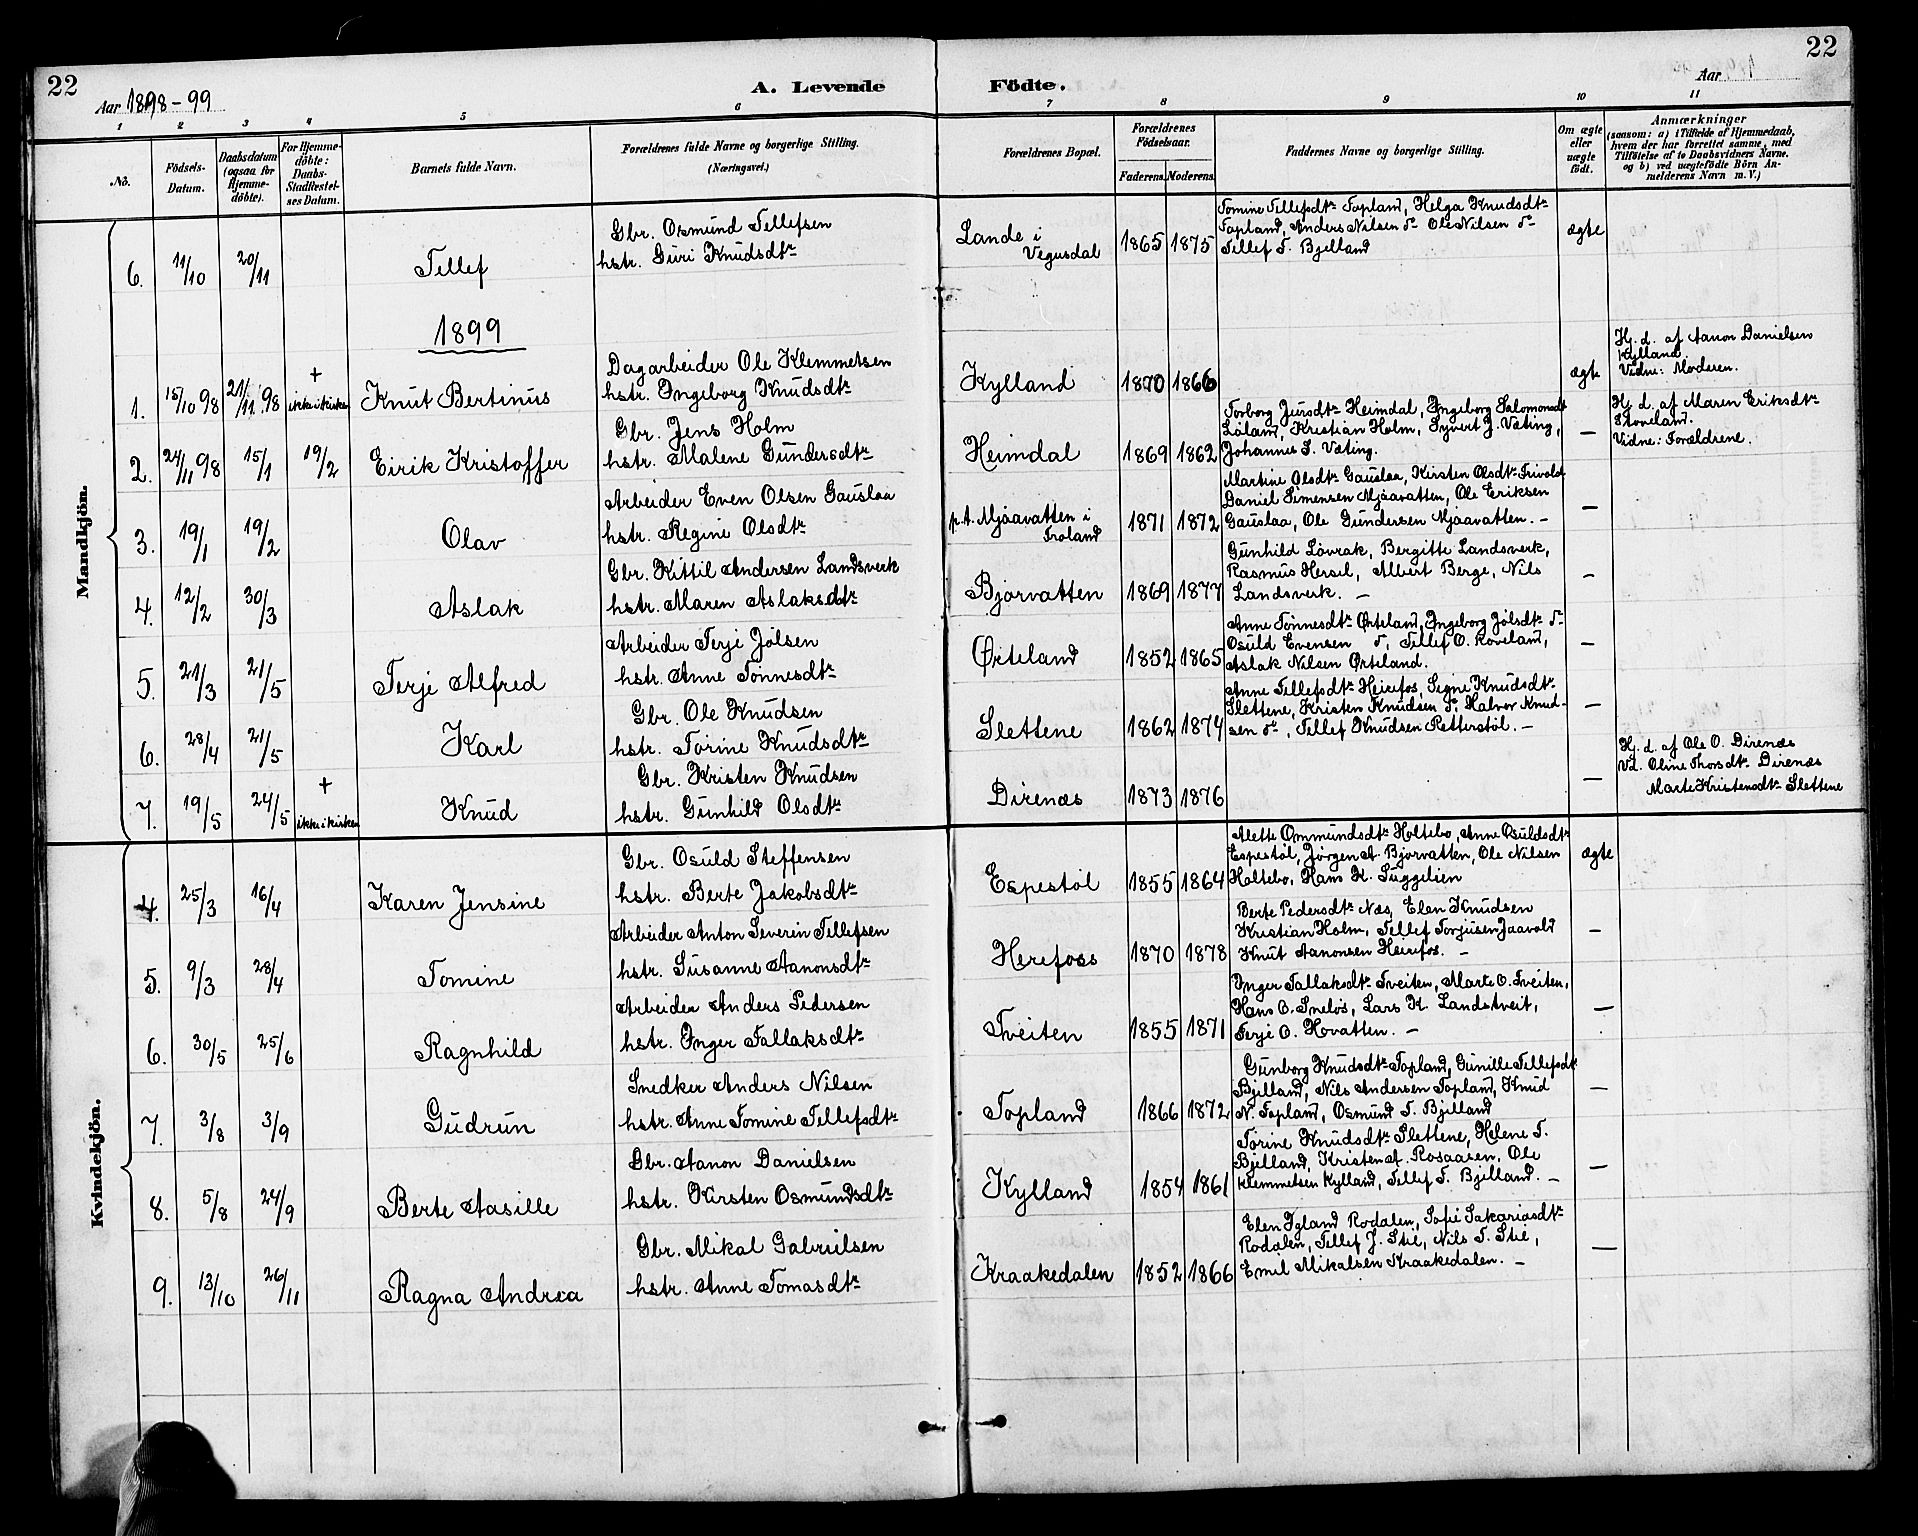 22
22
Aar 1898-99
A. Levende Födte.
Aar 1
1 2 3 4 5 6 7 8 9 10 11
No.
Födsels-Datum.
Daabsdatum (ogsaa for Hjemme-döbte).
For Hjemme-döbte: Daabs-Stadfæstel-ses Datum.
Barnets fulde Navn.
Forældrenes fulde Navne og borgerlige Stilling.
(Næringsvei.)
Forældrenes Bopæl.
Forældrenes Födselsaar.
Faderens. Moderens.
Faddernes Navne og borgerlige Stilling.
Om ægte eller uægte födt.
Anmærkninger
(saasom: a) i Tilfælde af Hjemmedaab, hvem der har forrettet samme, med Tilföielse af to Daabsvidners Navne. og b) ved uægtefödte Börn An-melderens Navn m. V.)
Mandkjön.
6. 11/10 20/11 Tellef
Gbr. Osmund Tellefsen
hstr. Guri Knudsdtr
Lande i
Vegusdal
1865 1875
Tomine Tellefsdtr Topland, Helga Knudsdtr
Topland, Anders Nilsen T- Ole Nilsen T-
Tellef T. Bjelland
ægte
1899
1. 15/10 98 21/11 98 + ikke i kirken Knut Bertinus
Dagarbeider Ole Klemmetsen
hstr. Ingeborg Knudsdtr
Kylland 1870 1866
ægte
Hj. d. af Aanon Danielsen
Kylland.
Vidne: Moderen.
2. 24/11 98 15/1 19/2 Eirik Kristoffer
Gbr. Jens Holm
hstr. Malene Gundersdtr
Heimdal 1869 1862
Torborg Jursdtr Heimdal, Ingeborg Salomonsdt
Løland, Kristian Holm, Syvert J. Væting,
Johannes S. Væting.
—
Hj. d. af Maren Eriksdtr
Stoveland.
Vidne: Forældrene.
3. 19/1 19/2 Olav
Arbeider Even Olsen Gauslaa
hstr. Regine Olsdtr
p.t. Mjaavatten i
Froland
1871 1872
Martine Olsdtr Gauslaa, Kirsten Olsdtr Trivold
Daniel Simensen Mjaavatten, Ole Eriksen
Gauslaa, Ole Gundersen Mjaavatten. —
—
4. 12/2 30/3 Aslak
Gbr. Kittil Andersen Landsverk
hstr. Maren Aslaksdtr
Bjorvatten 1869 1877
Gunhild Lövrak, Bergitte Landsverk,
Rasmus Hersel, Albert Berge, Nils
Landsverk. —
—
5. 21/3 21/5 Terje Alfred
Arbeider Terje Jølsen
hstr. Anne Tønnesdtr
Ørteland 1852 1865
Anne Tønnesdtr Ørteland, Ingeborg Jølsdtr T-
Osuld Evensen T, Tellef O. Roveland,
Aslak Nilsen Ørteland.
—
6. 28/4 21/5 Karl
Gbr. Ole Knudsen
hstr. Torine Knudsdtr
Slettene 1862 1874
Anne Tellefsdtr Heirefos, Signe Knudsdtr
Slettene, Kristen Knudsen S. Halvor Knud-
sen S-, Tellef Knudsen Retterstøl. —
—
7. 19/5 24/5 + ikke i kirken Knud
Gbr. Kristen Knudsen
hstr. Gunhild Olsdtr
Direnæs 1873 1876
—
Hj. d. af Ole O. Direnæs
Vd. Oline Thorsdtr Direnæs
Marte Kristensdtr Slettene
Kvindekjön.
4. 25/3 16/4 Karen Jensine
Gbr. Osuld Steffensen
hstr. Berte Jakobsdtr
Espestøl 1855 1864
Alette Ommundsdtr Holtebo, Anne Osuldsdtr
Espestøl, Jørgen A. Bjorvatten, Ole Nilsen
Holtebo, Hans K. Suggelien
ægte
5. 9/3 28/4 Tomine
Arbeider Anton Severin Tellefsen
hstr. Susanne Aanonsdtr
Herefoss 1870 1878
Berte Pedersdtr Næs, Elen Knudsen
Kristian Holm, Tellef Torjusen Jaavold
Knut Aanonsen Heirefos. —
—
6. 30/5 25/6 Ragnhild
Arbeider Anders Pedersen
hstr. Inger Tallaksdtr
Tveiten 1855 1871
Inger Tallaksdtr Tveiten, Marte O. Tveiten,
Hans O. Sneløs, Lars K. Landstveit,
Terje O. Hovatten. —
—
7. 3/8 3/9 Gudrun
Snedker Anders Nilsen
hstr. Anne Tomine Tellefsdtr
Topland 1866 1872
Gunborg Knudsdtr Topland, Gunille Tellefsdt
Bjelland, Nils Andersen Topland, Knud
N. Topland, Osmund T. Bjelland
—
8. 5/8 24/9 Berte Aasille
Gbr. Aanon Danielsen
hstr. Kirsten Osmundsdtr
Kylland 1854 1861
Torine Knudsdtr Slettene, Helene T.
Bjelland, Kristen A. Rosaasen, Ole
Klemmetsen Kylland, Tellef T. Bjelland. —
—
9. 13/10 26/11 Ragna Andrea
Gbr. Mikal Gabrielsen
hstr. Anne Tomasdtr
Kraakedalen 1852 1866
Elen Igland Rodalen, Sofie Sakariasdtr
Rodalen, Tellef J. Stie, Nils T. Stie,
Emil Mikalsen Kraakedalen. —
—